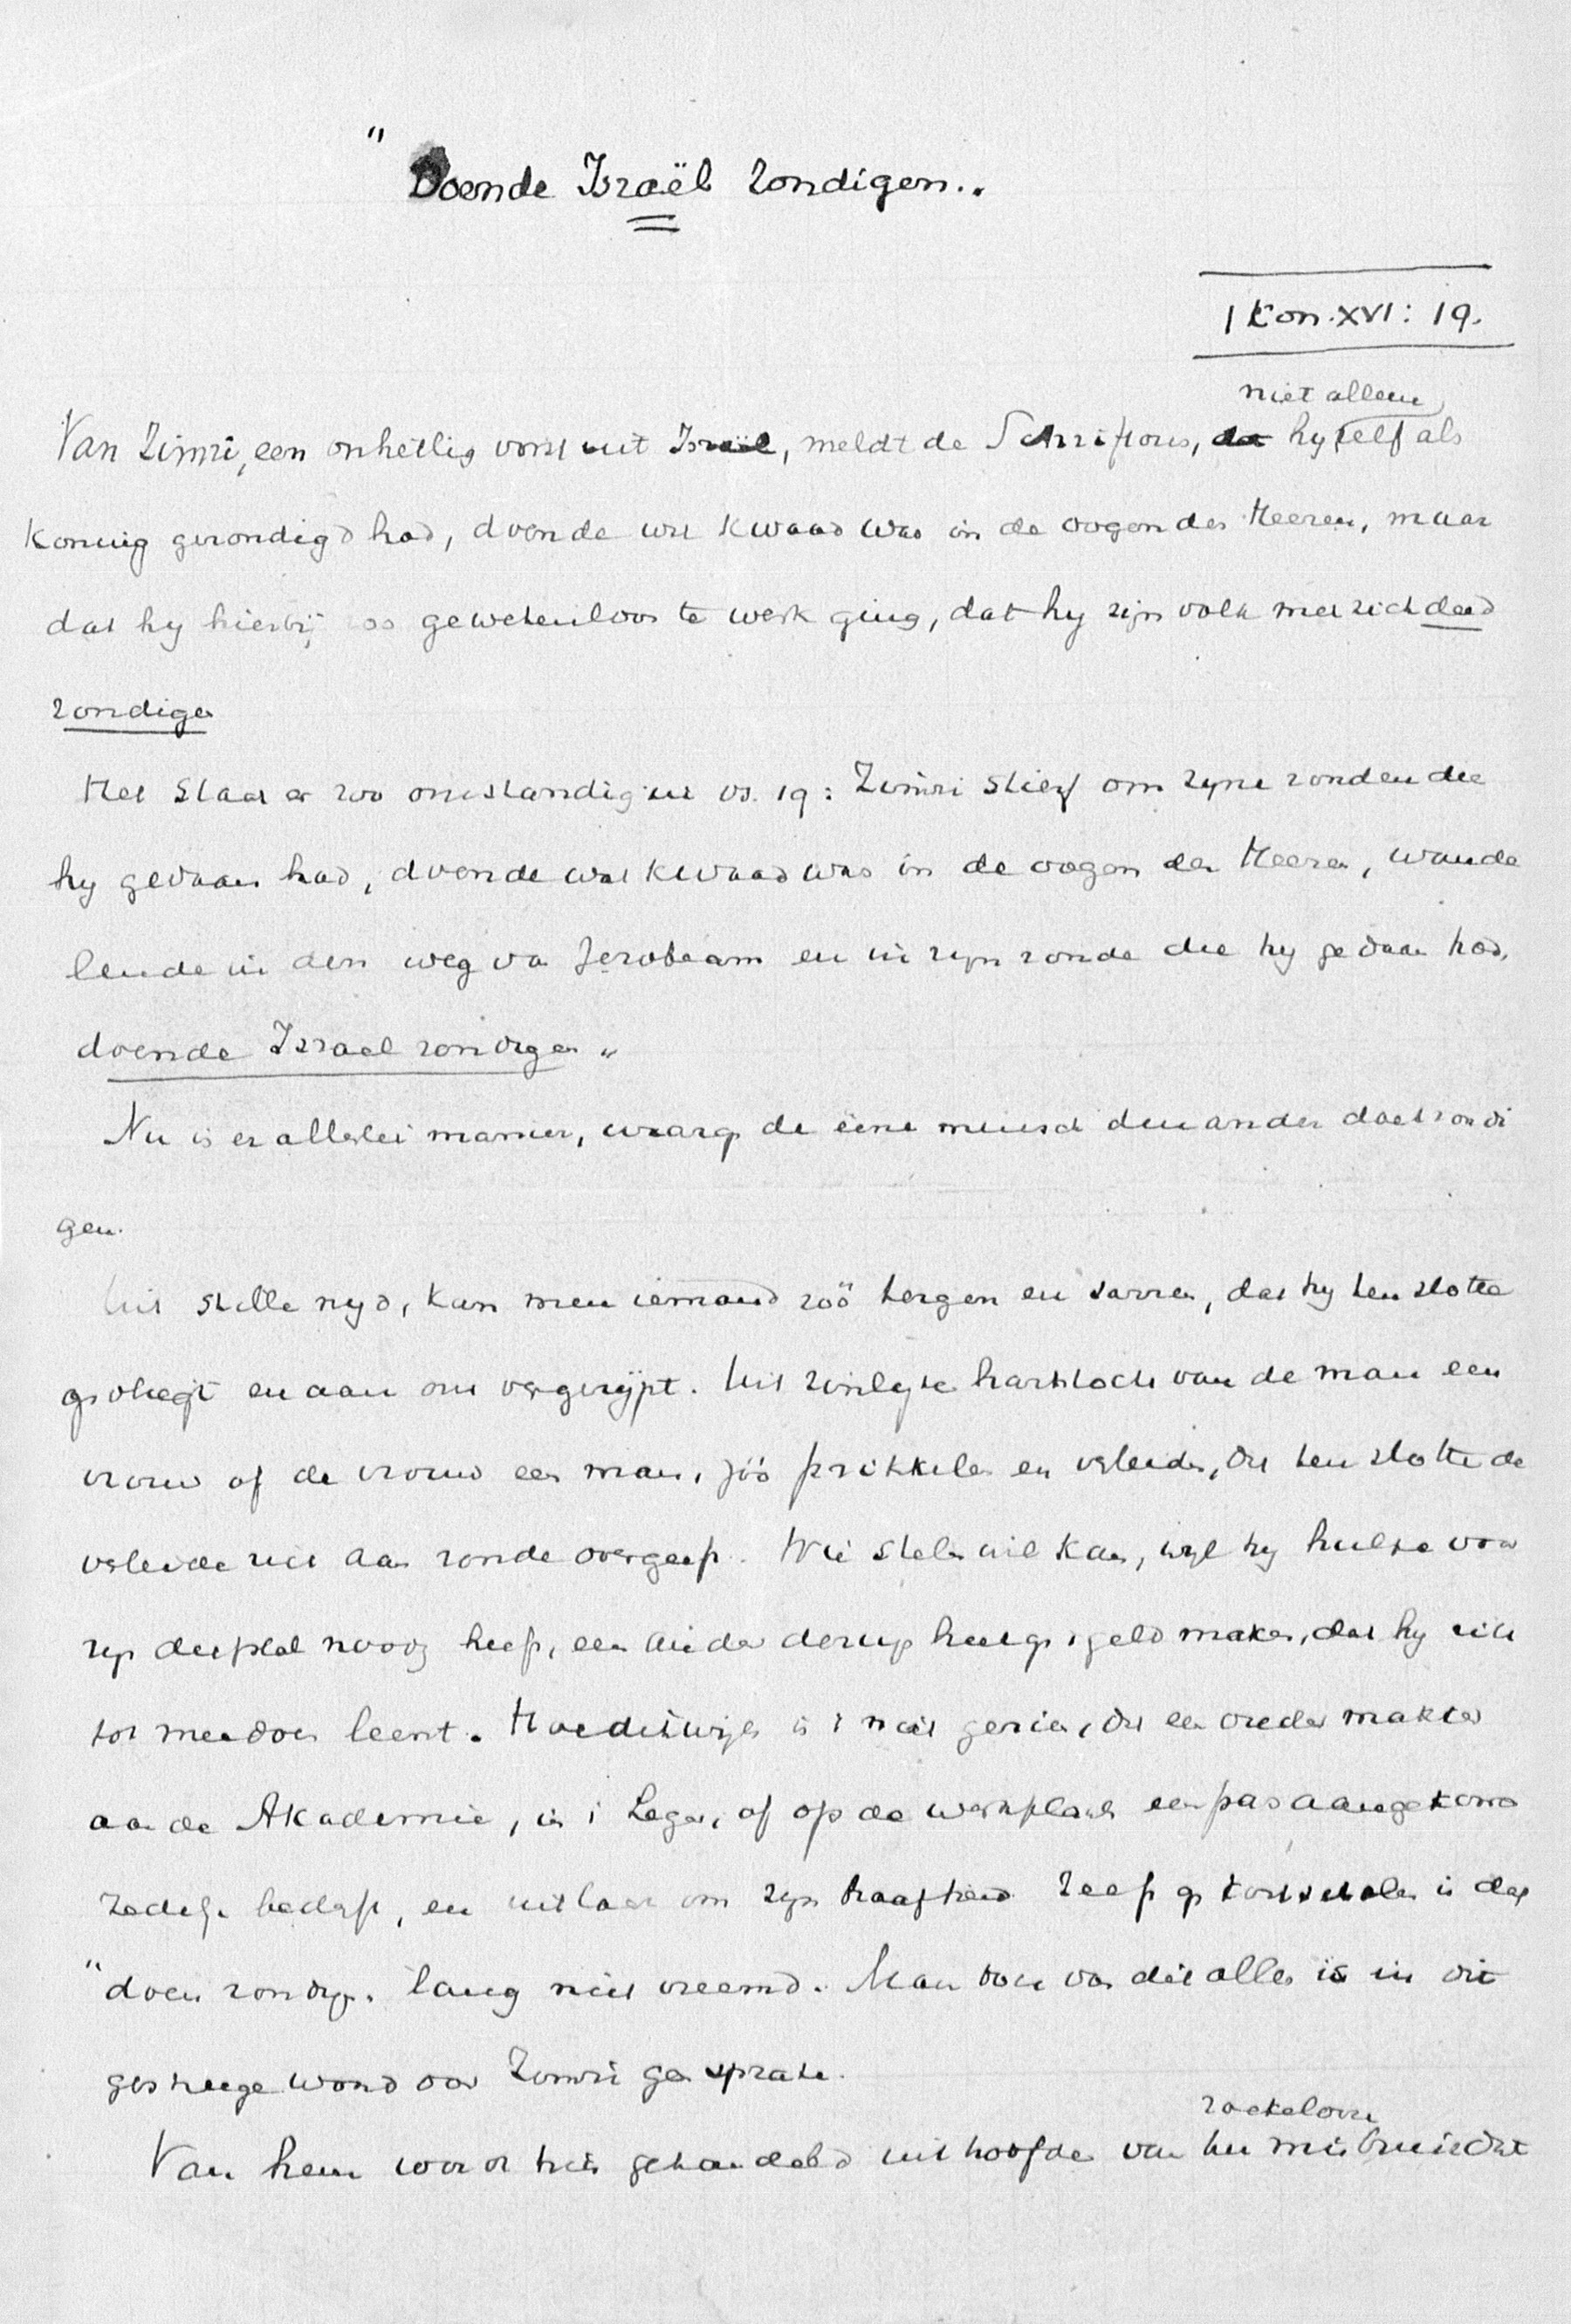 "Doende Israël zondigen„
1 Kon. XVI: 19.
niet alleen
Van Zimri, een onheilig vorst uit Israël, meldt de Schrift ons, dat hy zelf als
Koning gezondigd had, doende wat kwaad was in de oogen des Heeren, maar
dat hy hierbij zoo gewetenloos te werk ging, dat hy zijn volk met zich deed
zondigen
Het staat er zoo omstandig in vs. 19: Zimri stierf om zyne zonden die
hy gedaan had, doende wat kwaad was in de oogen des Heeren, wande
lende in den weg van Jerobeam en in zyn zonde die hy gedaan had,
doende Israel zondigen„
Nu is er allerlei manier, waarop de eene mensch den ander doet zondi
gen.
Uit stille nyd, kan men iemand zóó tergen en sarren, dat hy ten slotte
opvliegt en aan ons vergrijpt. Uit zinlyke hartstocht van de man een
vrouw of de vrouw een man, zóó prikkelen en verleiden, dat ten slotte de
verleide zich aan zonde overgeeft. Wie stelen wil kan, wyl hy hulpe voor
zyn diefstal noodig heeft, een ander derwijs heet op 't geld maken, dat hy zich
tot meedoen leent. Hoe dikwijls is 't niet gezien, dat een wreder makker
aan de Akademie, in 't Leger, of op de werkplaats een pas aangekomen
zedelijk bederft, en uitlacht om zyn braafheid. Zelfs op kostscholen is dat
"doen zondigen„ lang niet vreemd. Maar van van dit alles is in dit
gestrenge woord over Zimri geen sprake.
zoekeloos
Van hem wordt hier gehandeld uit hoofde van het misbruik dat